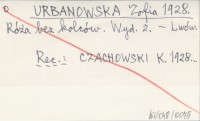 URBANOWSKA Zofia 1928.
Róża bez kolców. Wyd. 2. – Lwów.
Rec.: CZACHOWSKI K. 1928...